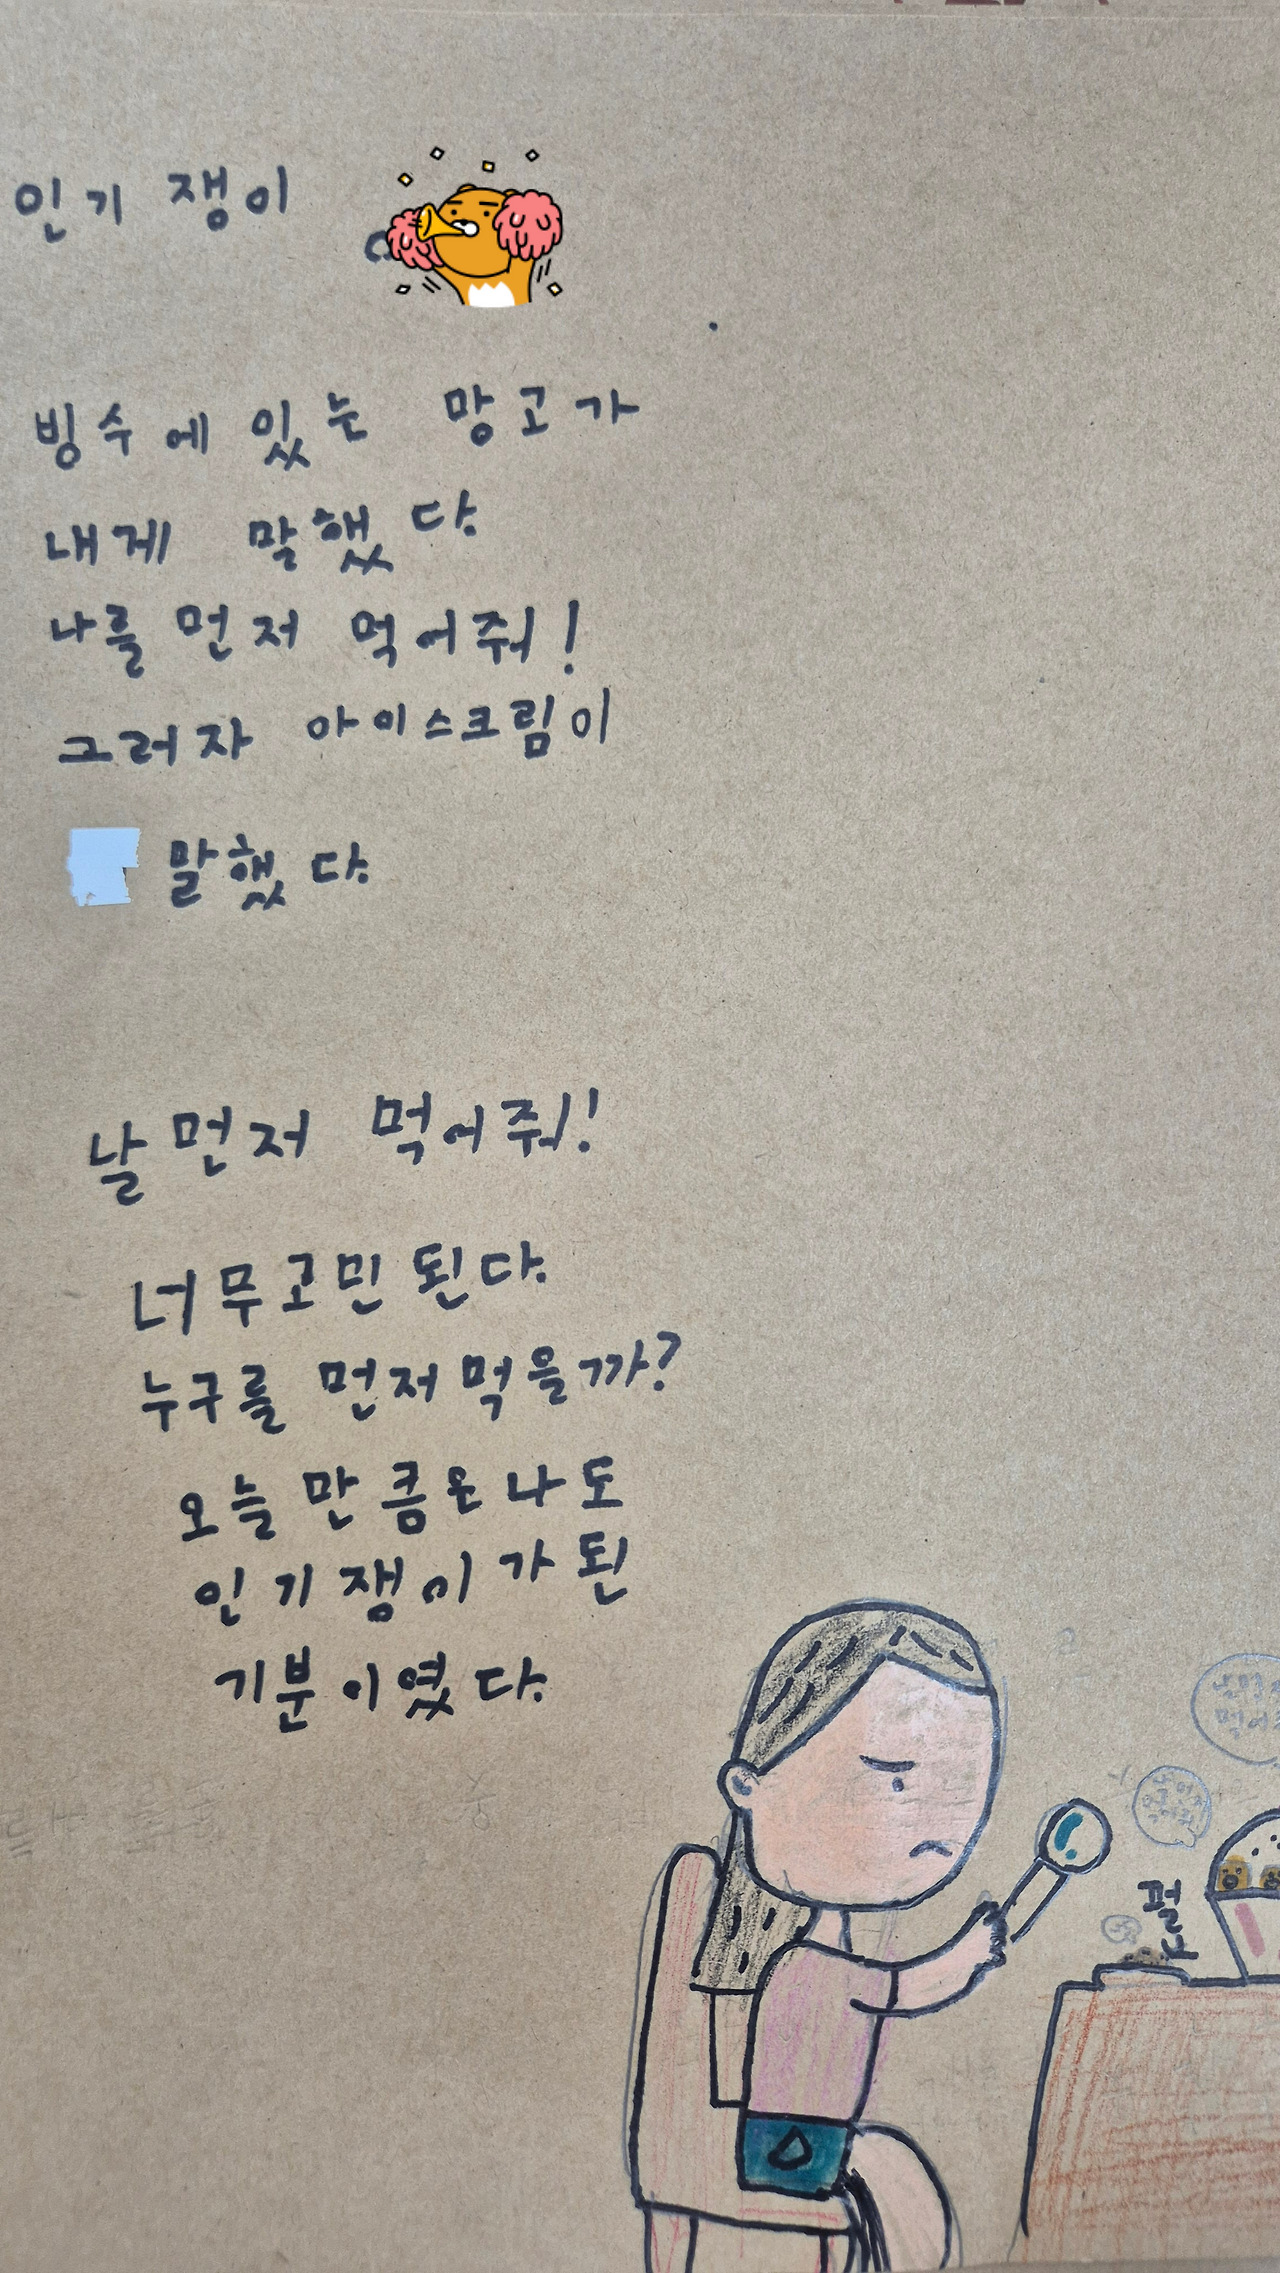 인기 쟁이
빙수에 있는 망고가
내게 말했다.
나를 먼저 먹어줘!
그러자 아이스크림이
말했다.
날 먼저 먹어줘!
너무 고민 된다.
누구를 먼저 먹을까?
오늘 만큼은 나도
인기 쟁이가 된
기분이였다.
펄